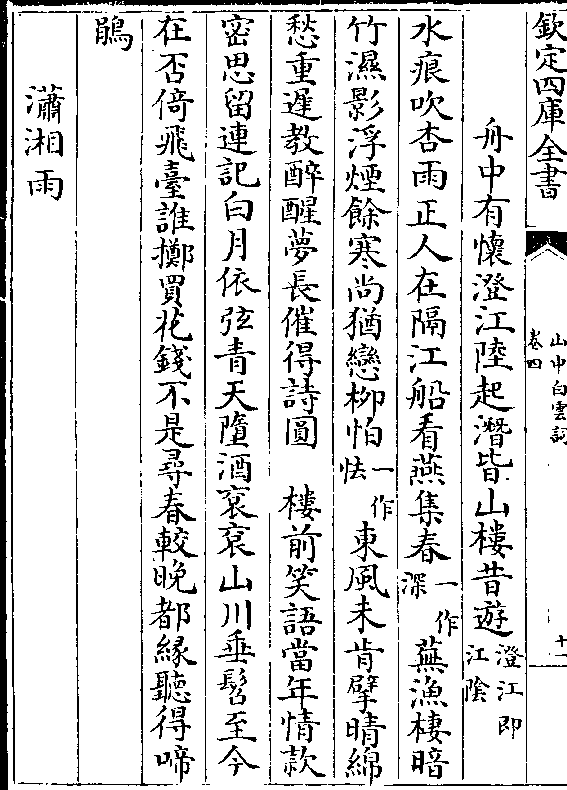 欽定四庫全書
山中白雲詞
卷四
十一
舟中有懷澄江陸起潛皆山樓昔遊澄江即江陰
水痕吹杏雨正人在隔江船看燕集春一作深蕪漁棲暗
竹濕影浮煙餘寒尚猶戀柳怕一作怯東風未肯擘晴綿
愁重遲教醉醒夢長催得詩圓　樓前笑語當年情款
密思留連記白月依弦青天墮酒衮衮山川垂髫至今
在否倚飛臺誰擲買花錢不是尋春較晚都緣聽得啼
鵑
瀟湘雨